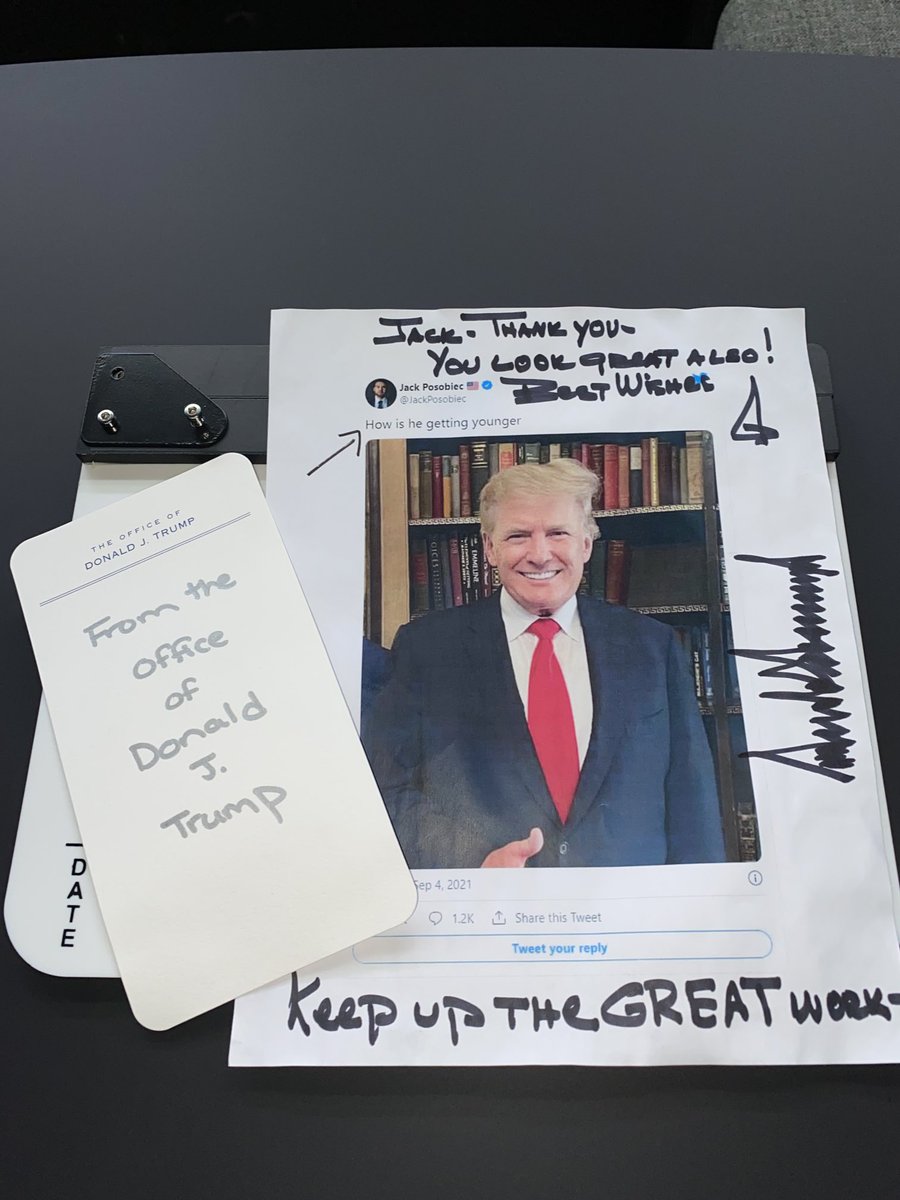 JACK - THANK YOU -
YOU LOOK GREAT ALSO!
BEST WISHES
Jack Posobiec 🇺🇸
@JackPosobiec
How is he getting younger
THE OFFICE OF
DONALD J. TRUMP
From the
office
of
Donald
J.
Trump
EMMELINE
DATE
Sep 4, 2021
1.2K Share this Tweet
Tweet your reply
Keep up THE GREAT WORK -